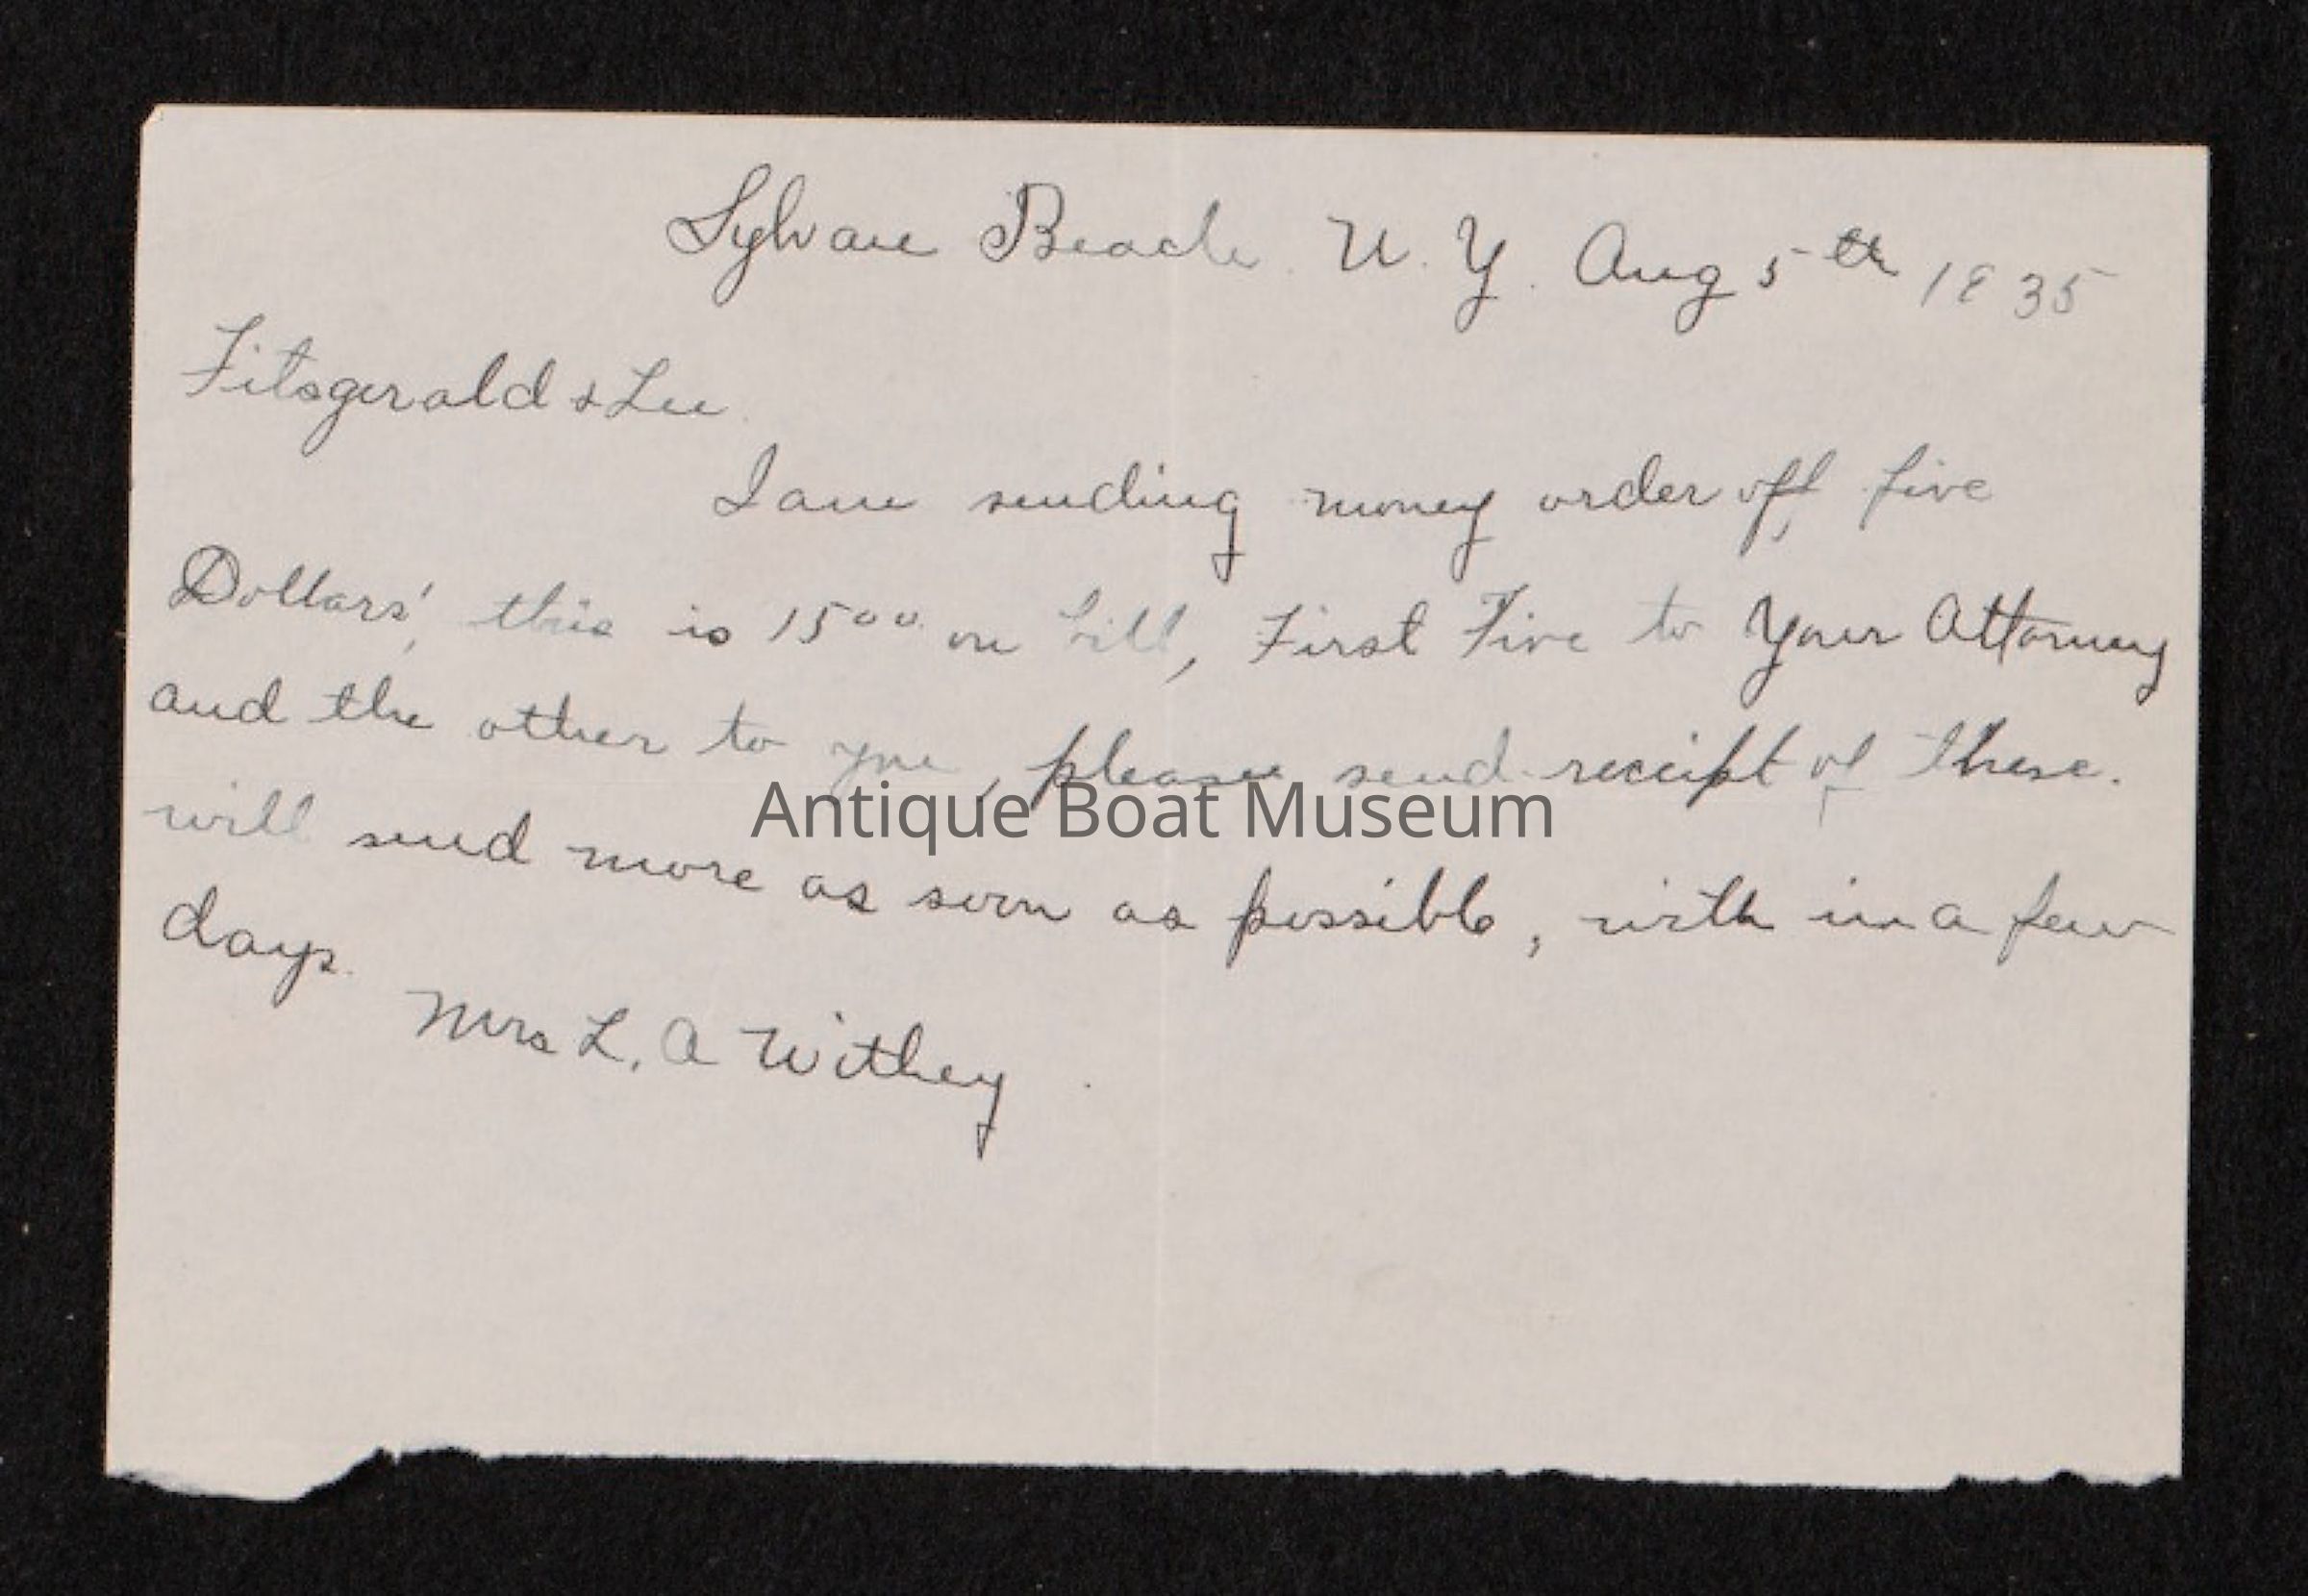 Sylvan Beach. N. Y. Aug 5th 1935
Fitsgerald & Lee.
I am sending money order off five
Dollars', this is 15oo on bill, First Five to Your Attorney
and the other to you, please send receipt of these.
Antique Boat Museum
will send more as soon as possible, with in a few
days.
Mrs L. A Withey.